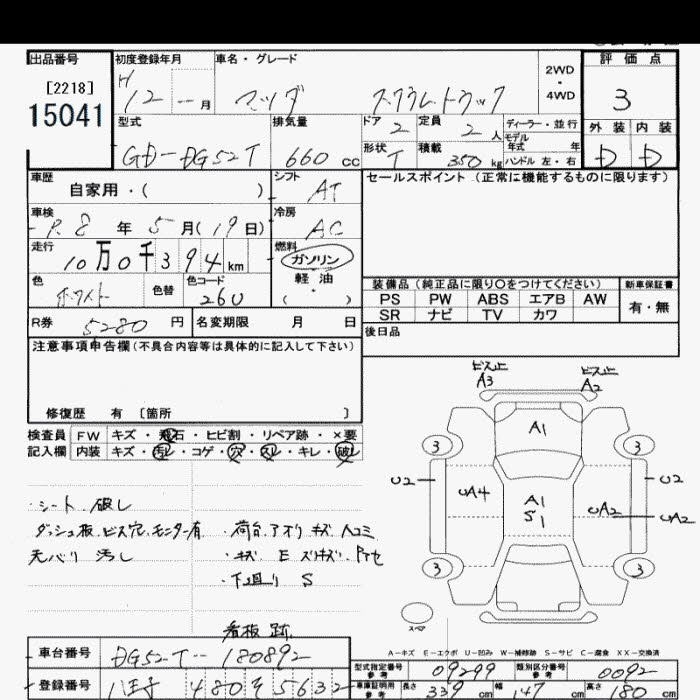 出品番号 初度登録年月 車名・グレード 評価点
[2218] H 2WD
15041 12 ー 月 マツダ スクラムトラック ・ 4WD 3
型式 排気量 ドア 2 定員 2 人 ディーラー・並行 外装 内装
モデル年式 年
GD-DG52T 660 cc 形状 T 積載 350 kg ハンドル 左・右 D D
車歴 シフト セールスポイント (正常に機能するものに限ります)
自家用・( ) AT
車検 冷房
R.8 年 5 月(19日) AC
走行 燃料
10万0千394 km ガソリン
色 色替 色コード 軽油 装備品 (純正品に限り○をつけてください) 新車保証書
ホワイト 26U ( ) PS PW ABS エアB AW 有・無
SR ナビ TV カワ
R券 5280 円 名変期限 月 日 後日品
注意事項申告欄 (不具合内容等は具体的に記入して下さい)
ビス止 ビス止
A3 A2
修復歴 有 〔箇所 〕 A1
検査員 FW キズ・飛石・ヒビ割・リペア跡・×要
記入欄 内装 キズ・汚レ・コゲ・穴・スレ・キレ・破レ
3 3
U2 UA4 A1 U2
S1 UA2 UA2
・シート、破レ
ダッシュ板、ビス穴、モニター有
天バリ 汚し
・荷台、アオリ キズ 凹コミ
・キズ E
・下廻リ S
3 3
スペア
看板 跡
A-キズ E-エクボ U-凹み W-補修跡 S-サビ C-腐食 XX-交換済
車台番号 DG52T-180892 型式指定番号 参考 09299 類別区分番号 参考 0092
登録番号 八王子 480 そ 5632 車庫証明用 参考 長さ 339 cm 幅 147 cm 高さ 180 cm